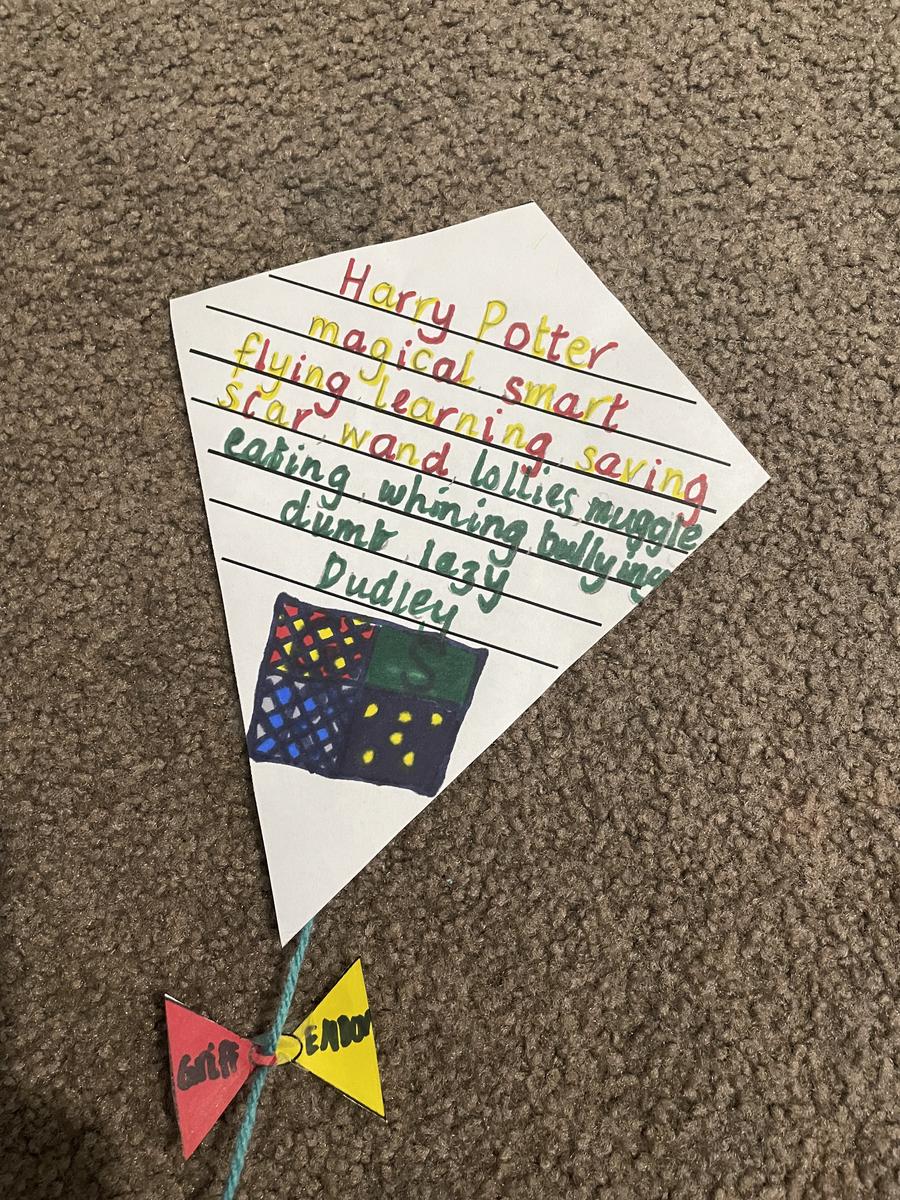 Harry Potter
magical, smart
flying, learning, saving
scar, wand, lollies muggle
eating, whining, bullying
dumb, lazy
Dudley
S
Griff
ENDOr